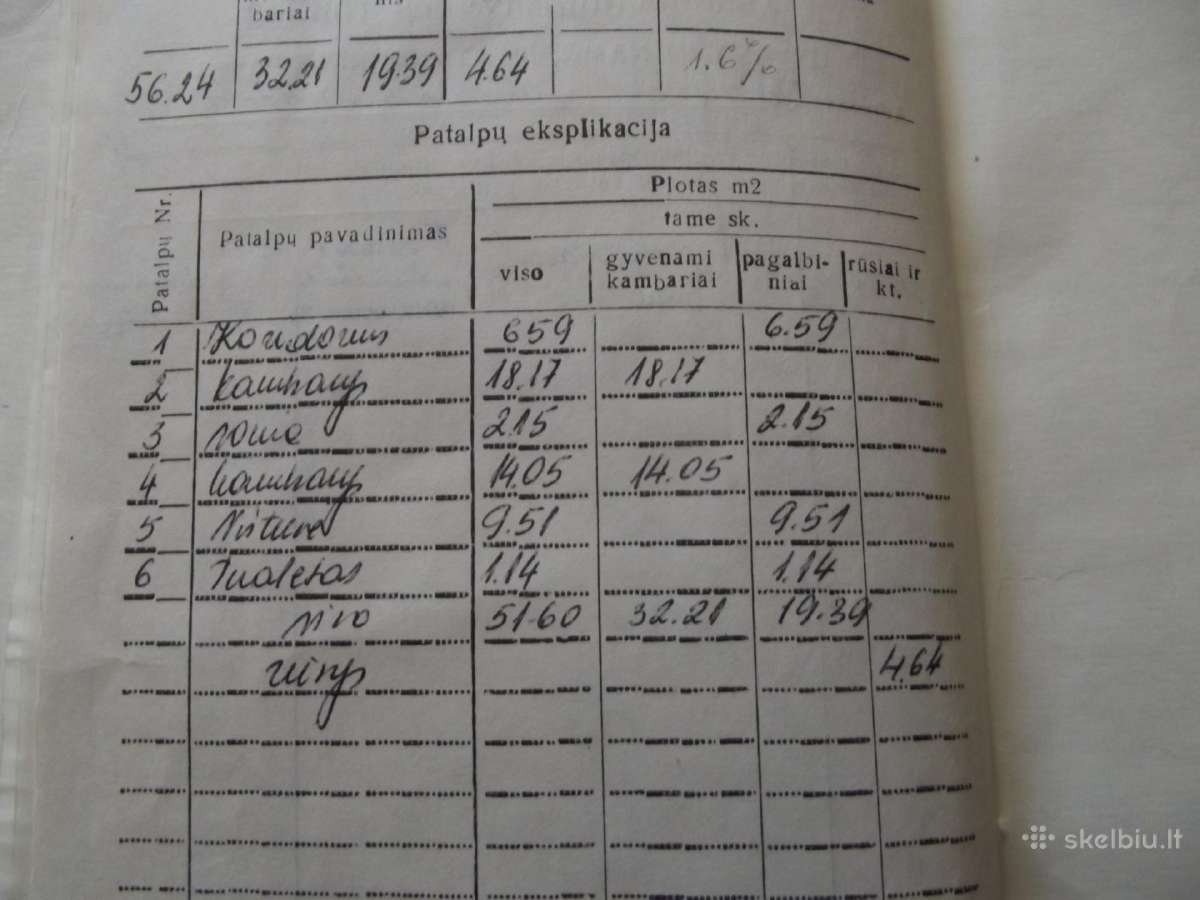 bariai
56.24 32.21 19.39 4.64 1.6%
Patalpų eksplikacija
Patalpų Nr. Patalpų pavadinimas Plotas m2
tame sk.
viso gyvenami kambariai pagalbi- niai rūsiai ir kt.
1 Koridorius 6.59 6.59
2 kambarys 18.17 18.17
3 vonia 2.15 2.15
4 kambarys 14.05 14.05
5 Virtuvė 9.51 9.51
6 Tualetas 1.14 1.14
viso 51.60 32.21 19.39
rūsys 4.64
skelbiu.lt